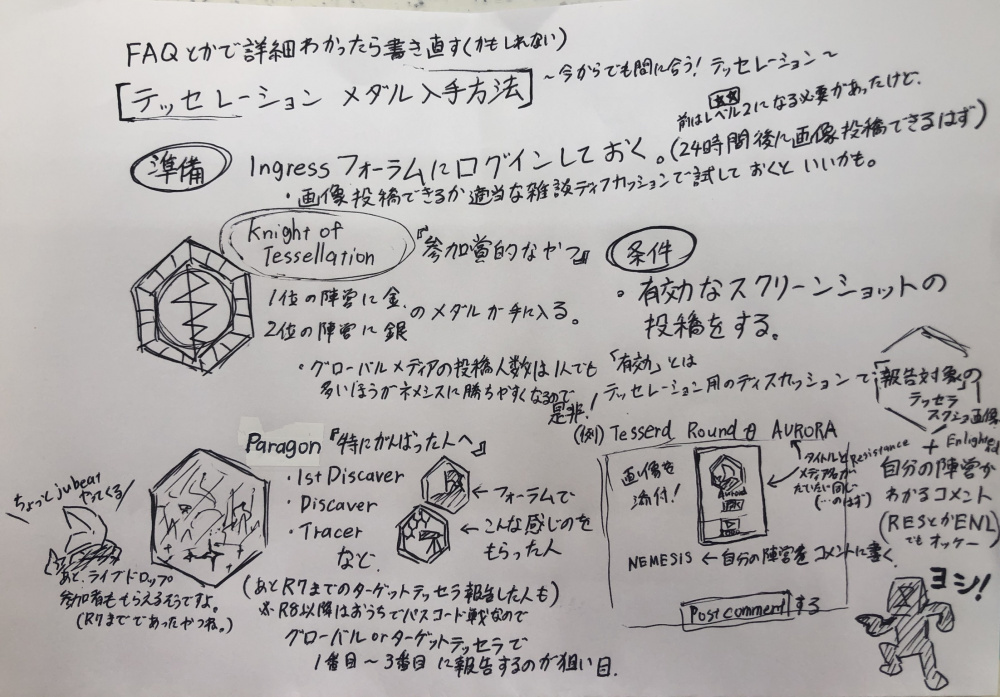 FAQとかで詳細わかったら書き直す(かもしれない)
テッセレーション メダル入手方法
～今からでも間に合う！テッセレーション～
前はレベル2になる必要があったけど、
準備
Ingressフォーラムにログインしておく。(24時間後に画像投稿できるはず)
・画像投稿できるか適当な雑談ディスカッションで試しておくといいかも。
Knight of
Tessellation
『参加賞的なやつ』
1位の陣営に金
2位の陣営に銀
のメダルが手に入る。
・グローバルメディアの投稿人数は1人でも
多いほうがネメシスに勝ちやすくなるので
是非！
条件
・有効なスクリーンショットの
投稿をする。
「有効」とは
テッセレーション用のディスカッションで「報告対象」の
テッセラ
スクショ画像
+
自分の陣営が
わかるコメント
(RESとかENL)
でもオッケー
(例) Tesserd Round θ AURORA
タイトルと
メディア名が
だいたい同じ
(…のはず)
Resistance
Enlightened
画像を
添付！
Aurora
NEMESIS ← 自分の陣営をコメントに書く
Post comment する
Paragon『特にがんばった人へ』
・1st Discaver
・Discaver
・Tracer
など、
←フォーラムで
←こんな感じのを
もらった人
(あとR7までのターゲットテッセラ報告した人も)
※R8以降はおうちでパスコード戦なので
グローバルorターゲットテッセラで
1番目～3番目に報告するのが狙い目.
ちょっとjubeat
やってくる
あと、ライブドロップ
参加者ももらえるそうですよ。
(R7まであったやつね。)
ヨシ！